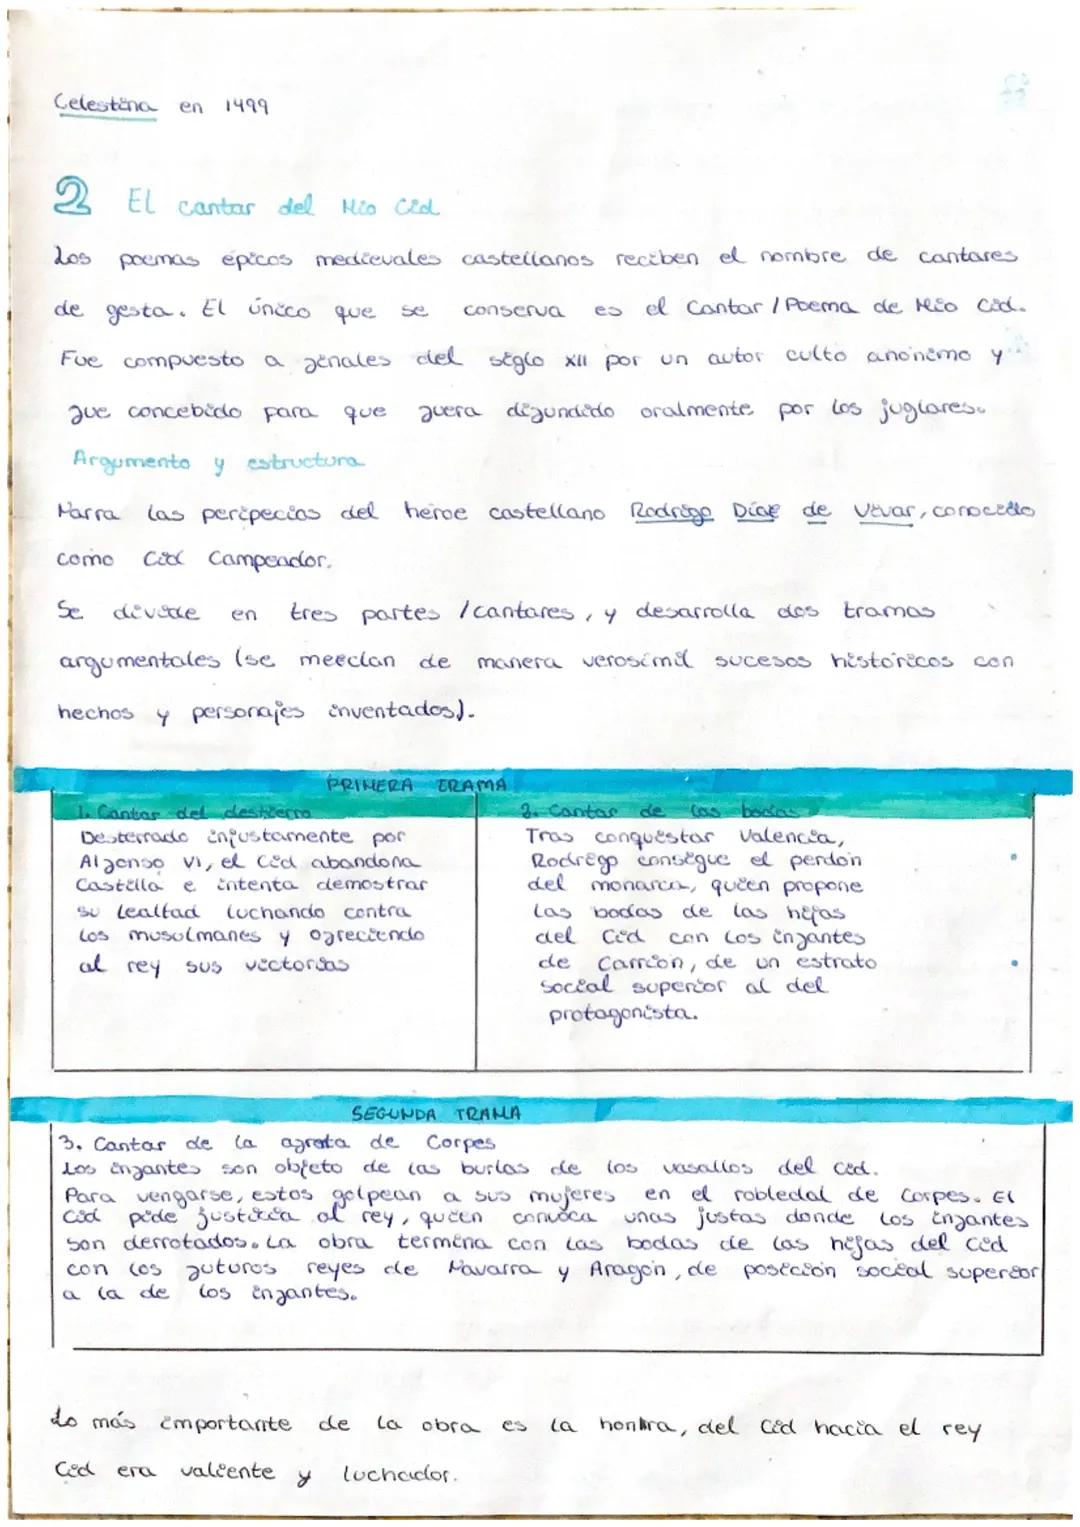 Celestina en 1499
2 El cantar del Mio Cid
Los poemas épicos medievales castellanos reciben el nombre de cantares
de gesta. El único que se conserva es el Cantar / Poema de Mio Cid.
Fue compuesto a finales del siglo XII por un autor culto anónimo y
fue concebido para que fuera difundido oralmente por los juglares.
Argumento y estructura
Narra las peripecias del héroe castellano Rodrigo Díaz de Vivar, conocido
como Cid Campeador.
Se divide en tres partes / cantares, y desarrolla dos tramas
argumentales (se mezclan de manera verosímil sucesos históricos con
hechos y personajes inventados).
PRIMERA TRAMA
1. Cantar del destierro
Desterrado injustamente por
Alfonso VI, el Cid abandona
Castilla e intenta demostrar
su lealtad luchando contra
los musulmanes y ofreciendo
al rey sus victorias
2. Cantar de las bodas
Tras conquistar Valencia,
Rodrigo consigue el perdón
del monarca, quien propone
las bodas de las hijas
del Cid con los infantes
de Carrión, de un estrato
social superior al del
protagonista.
SEGUNDA TRAMA
3. Cantar de la afrenta de Corpes
Los infantes son objeto de las burlas de los vasallos del Cid.
Para vengarse, estos golpean a sus mujeres en el robledal de Corpes. El
Cid pide justicia al rey, quien convoca unas justas donde los infantes
son derrotados. La obra termina con las bodas de las hijas del Cid
con los futuros reyes de Navarra y Aragón, de posición social superior
a la de los infantes.
Lo más importante de la obra es la honra, del Cid hacia el rey
Cid era valiente y luchador.